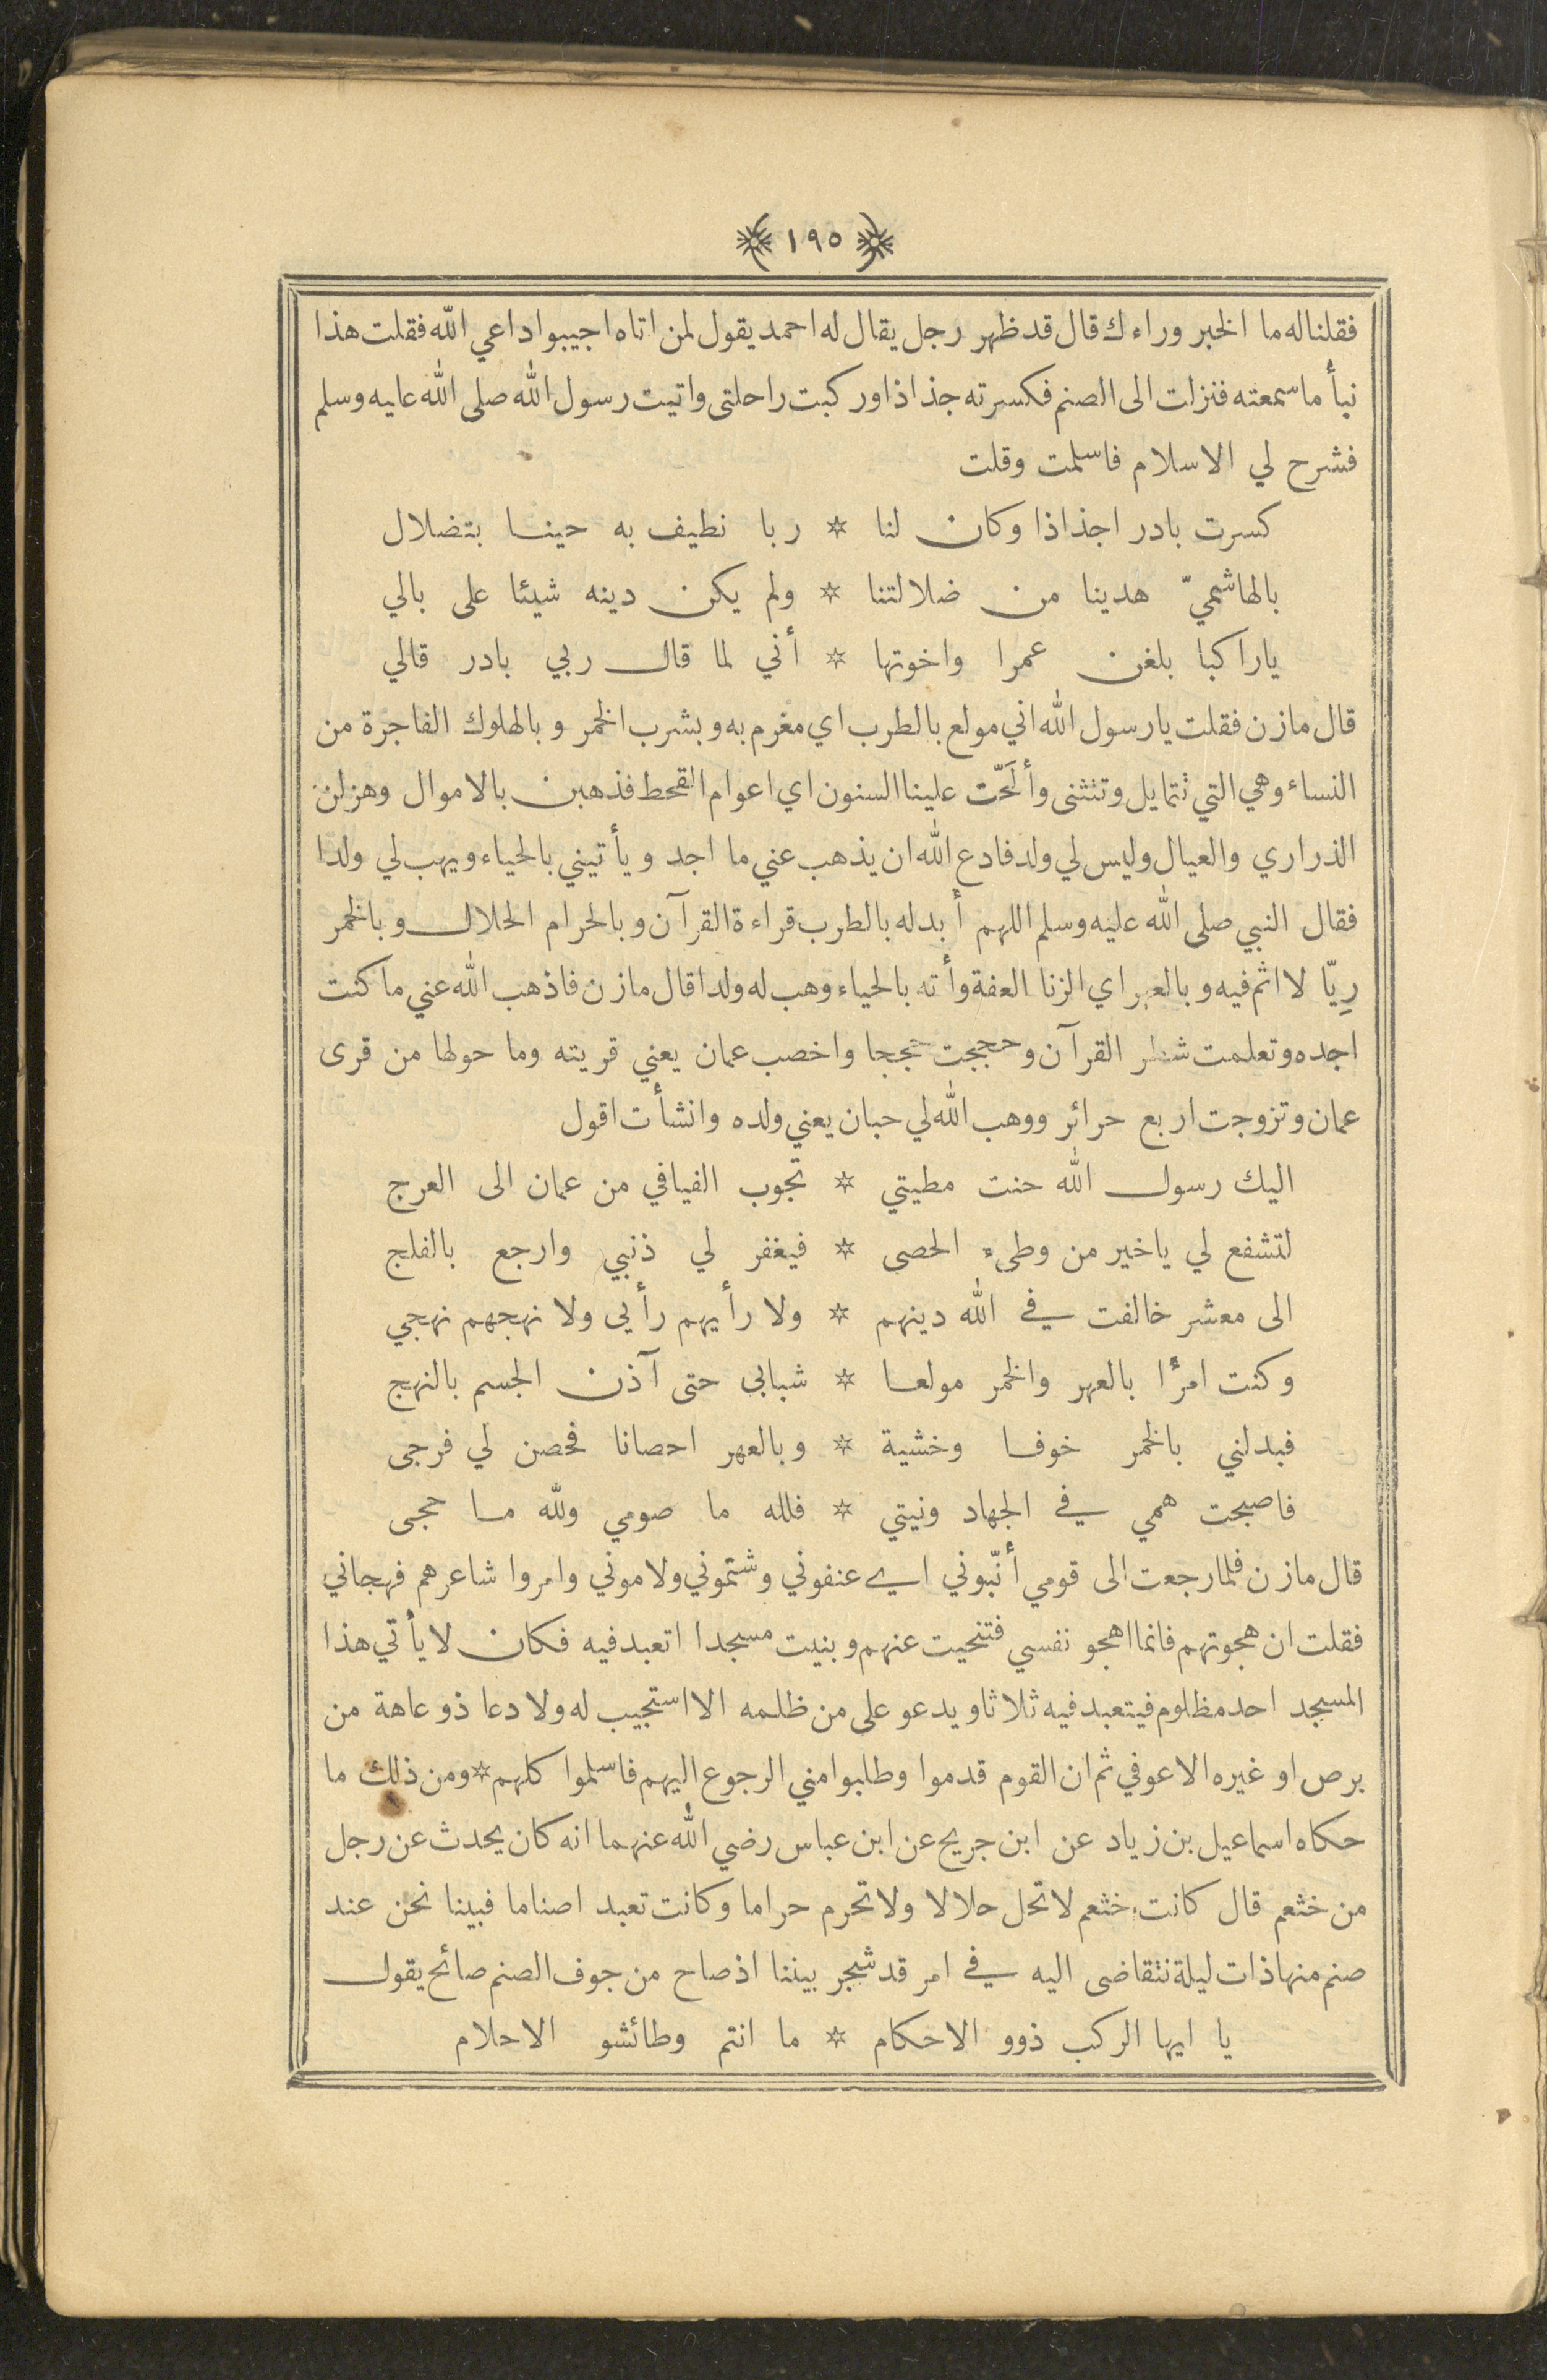 ١٩٥
فقلنا له ما الخبر وراءك قال قد ظهر رجل يقال له احمد يقول لمن اتاه اجيبوا داعي الله فقلت هذا
نبأ ما سمعته فنزلت الى الصنم فكسرته جذاذا وركبت راحلتى واتيت رسول الله صلى الله عليه وسلم
فشرح لي الاسلام فاسلمت وقلت
كسرت بادر اجذاذا وكان لنا * ربا نطيف به حينا بتضلال
بالهاشميّ هدينا من ضلالتنا * ولم يكن دينه شيئا على بالي
يا راكبا بلغن عمرا واخوتها * أني لما قال ربي بادر قالي
قال مازن فقلت يا رسول الله اني مولع بالطرب اي مغرم به وبشرب الخمر و بالهلوك الفاجرة من
النساء وهي التي تتمايل وتنثنى وألَحّت علينا السنون اي اعوام القحط فذهبن بالاموال وهزلن
الذراري والعيال وليس لي ولد فادع الله ان يذهب عني ما اجد و يأتيني بالحياء ويهب لي ولدا
فقال النبي صلى الله عليه وسلم اللهم أبدله بالطرب قراءة القرآن وبالحرام الحلال وبالخمر
رِيّا لا اثم فيه و بالعهر اي الزنا العفة وأته بالحياء وهب له ولدا قال مازن فاذهب الله عني ما كنت
اجده وتعلمت شطر القرآن وحججت حججا واخصب عمان يعني قريته وما حولها من قرى
عمان وتزوجت اربع حرائر ووهب الله لي حبان يعني ولده وانشأت اقول
اليك رسول الله حنت مطيتي * تجوب الفيافي من عمان الى العرج
لتشفع لي يا خير من وطىء الحصى * فيغفر لي ذنبي وارجع بالفلج
الى معشر خالفت في الله دينهم * ولا رأيهم رأيى ولا نهجهم نهجي
وكنت امرًأ بالعهر والخمر مولعا * شبابى حتى آذن الجسم بالنهج
فبدلني بالخمر خوفا وخشية * وبالعهر احصانا فحصن لي فرجى
فاصبحت همي في الجهاد ونيتي * فلله ما صومي ولله ما حجى
قال مازن فلما رجعت الى قومي أنّبوني اي عنفوني وشتموني ولاموني وامروا شاعرهم فهجاني
فقلت ان هجوتهم فانما اهجو نفسي فتنحيت عنهم وبنيت مسجدا اتعبد فيه فكان لا يأتي هذا
المسجد احد مظلوم فيتعبد فيه ثلاثا ويدعو على من ظلمه الا استجيب له ولا دعا ذو عاهة من
برص او غيره الا عوفي ثم ان القوم قدموا وطلبوا مني الرجوع اليهم فاسلموا كلهم * ومن ذلك ما
حكاه اسماعيل بن زياد عن ابن جريح عن ابن عباس رضي الله عنهما انه كان يحدث عن رجل
من خثعم قال كانت خثعم لا تحل حلالا ولا تحرم حراما وكانت تعبد اصناما فبينا نحن عند
صنم منها ذات ليلة نتقاضى اليه في امر قد شجر بيننا اذ صاح من جوف الصنم صائح يقول
يا ايها الركب ذوو الاحكام * ما انتم وطائشو الاحلام